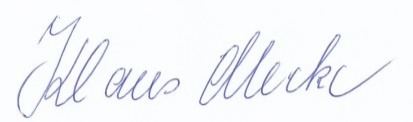 Klaus Mecke